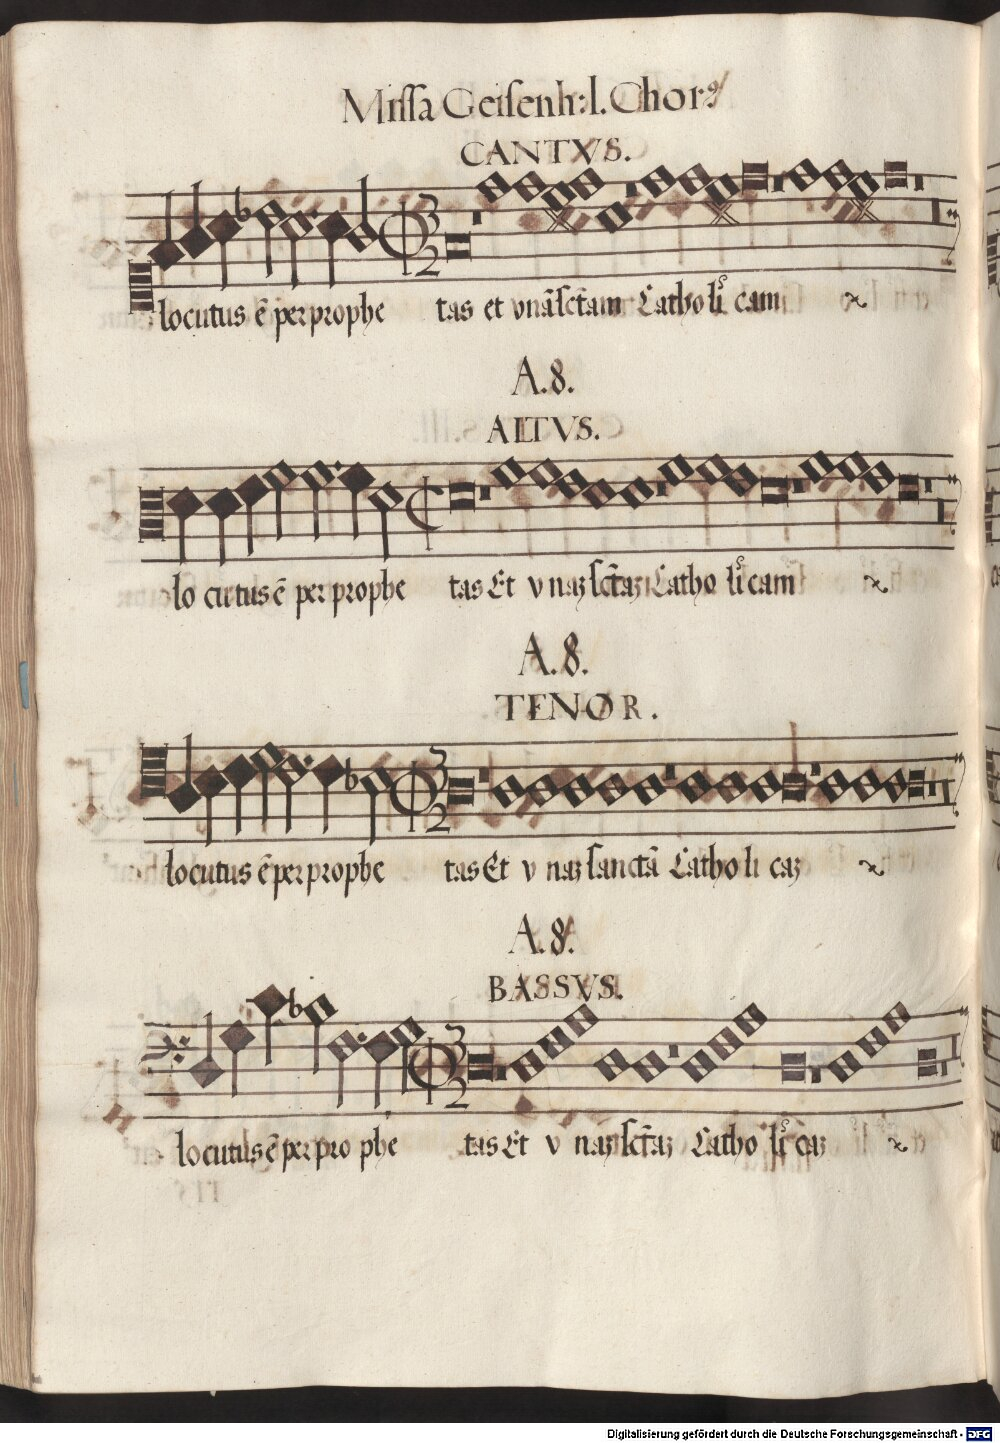 Missa Geisenh: I. Chorꝰ
CANTVS.
locutus ē per prophe tas et vnā sctam Catho li cam
A. 8.
ALTVS.
lo cutus ē per prophe tas Et v naʒ sctaʒ Catho li cam
A. 8.
TENOR.
locutus ē per prophe tas Et v naʒ sanctā Catho li caʒ
A. 8.
BASSVS.
locutus ē per pro phe tas Et v naʒ sctaʒ Catho li caʒ
Digitalisierung gefördert durch die Deutsche Forschungsgemeinschaft - DFG